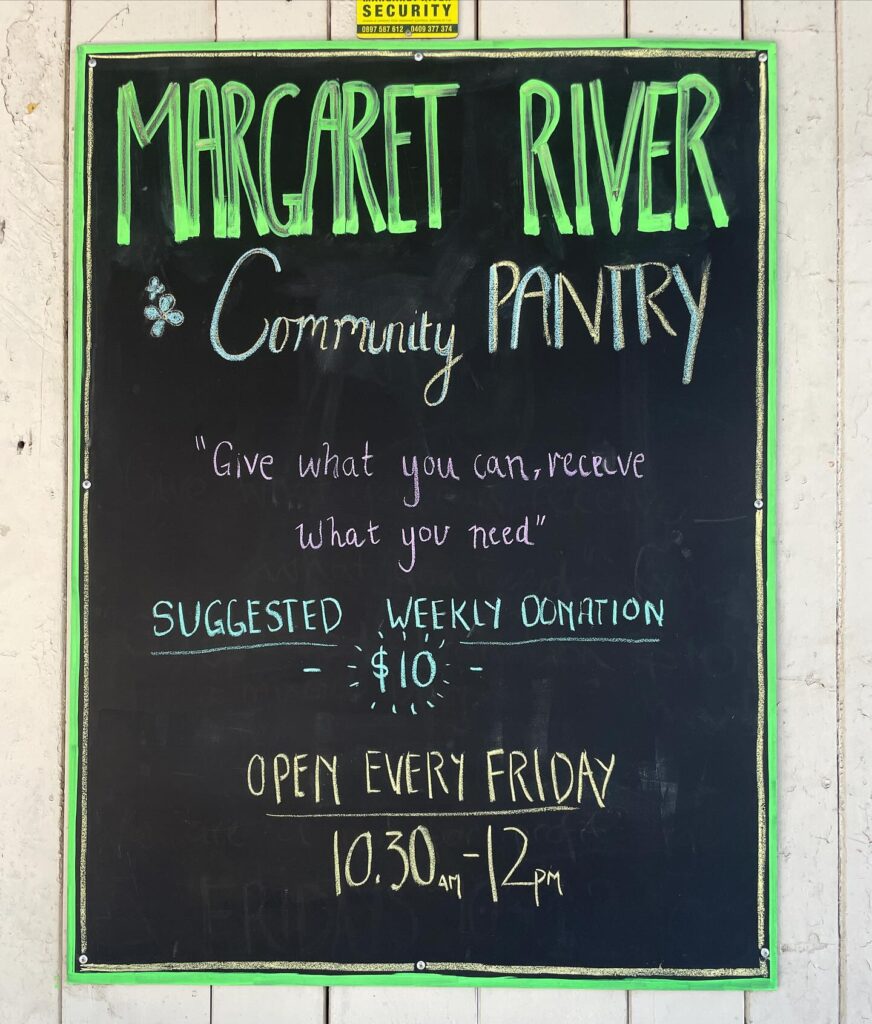 MARGARET RIVER
SECURITY
0897 587 612 0409 377 374
MARGARET RIVER
Community PANTRY
"Give what you can, receive
What you need"
SUGGESTED WEEKLY DONATION
- $10 -
OPEN EVERY FRIDAY
10.30AM-12PM